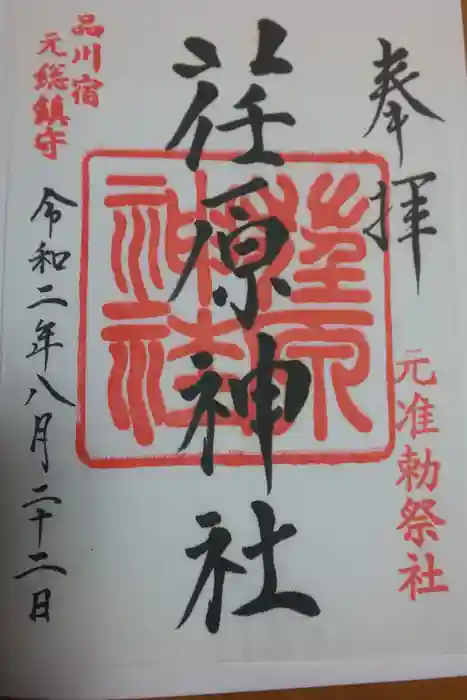 奉拝
元准勅祭社
荏原神社
品川宿
元総鎮守
令和二年八月二十二日